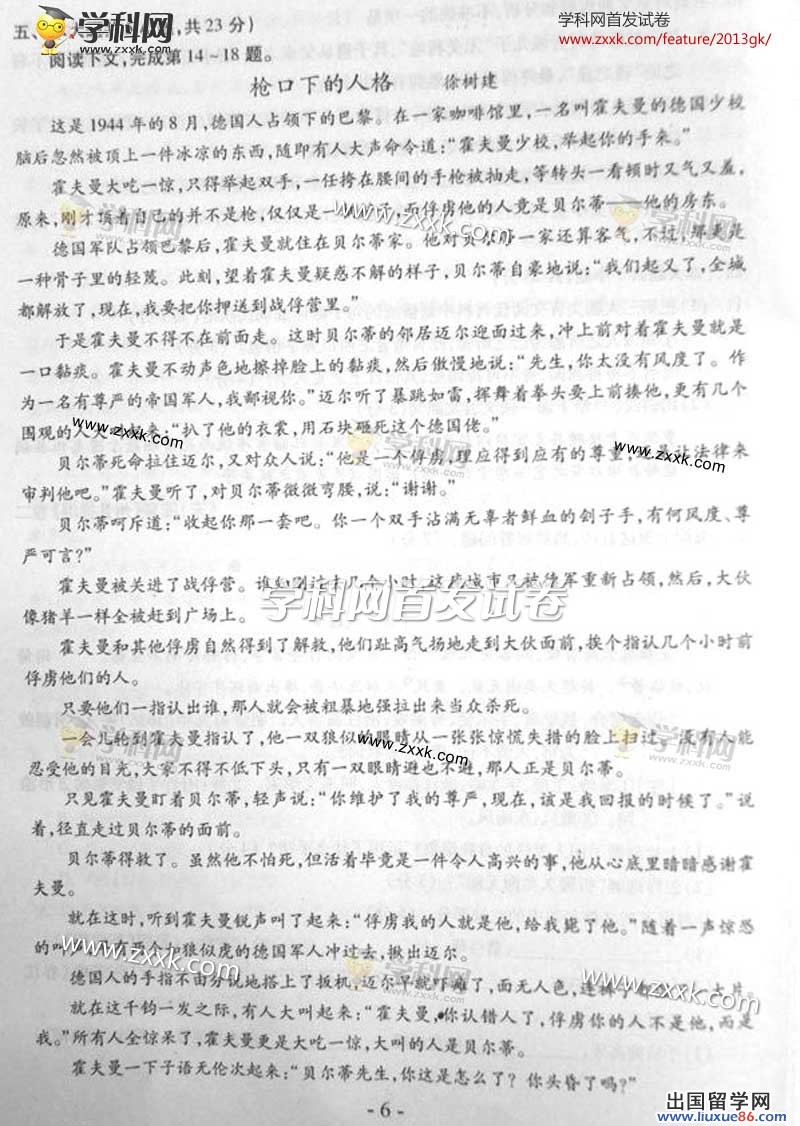 学科网首发试卷
www.zxxk.com/feature/2013gk/
学科网
zxxk.com
五、
共23分)
阅读下文,完成第14-18题。
枪口下的人格 徐树建
这是1944年的8月,德国人占领下的巴黎。在一家咖啡馆里,一名叫霍夫曼的德国少校
脑后忽然被顶上一件冰凉的东西,随即有人大声命令道:“霍夫曼少校,举起你的手来。”
霍夫曼大吃一惊,只得举起双手,一任挎在腰间的手枪被抽走,等转头一看顿时又气又羞,
原来,刚才顶着自己的并不是枪,仅仅是一 子,而俘虏他的人竟是贝尔蒂——他的房东。
德国军队占领巴黎后,霍夫曼就住在贝尔蒂家。他对贝尔蒂一家还算客气,不过,那更是
一种骨子里的轻蔑。此刻,望着霍夫曼疑惑不解的样子,贝尔蒂自豪地说:“我们起义了,全城
都解放了,现在,我要把你押送到战俘营里。”
于是霍夫曼不得不在前面走。这时贝尔蒂的邻居迈尔迎面过来,冲上前对着霍夫曼就是
一口黏痰。霍夫曼不动声色地擦掉脸上的黏痰,然后傲慢地说:“先生,你太没有风度了。作
为一名有尊严的帝国军人,我鄙视你。”迈尔听了暴跳如雷,挥舞着拳头要上前揍他,更有几个
围观的人大 起来:“扒了他的衣裳,用石块砸死这个德国佬。”
贝尔蒂死命拉住迈尔,又对众人说:“他是一个俘虏,理应得到应有的尊重,还是让法律来
审判他吧。”霍夫曼听了,对贝尔蒂微微弯腰,说:“谢谢。”
贝尔蒂呵斥道:“收起你那一套吧。你一个双手沾满无辜者鲜血的刽子手,有何风度、尊
严可言?”
霍夫曼被关进了战俘营。谁知刚过去几个小时,这座城市又被德军重新占领,然后,大伙
像猪羊一样全被赶到广场上。
霍夫曼和其他俘虏自然得到了解救,他们趾高气扬地走到大伙面前,挨个指认几个小时前
俘虏他们的人。
只要他们一指认出谁,那人就会被粗暴地强拉出来当众杀死。
一会儿轮到霍夫曼指认了,他一双狼似的眼睛从一张张惊慌失措的脸上扫过,没有人能
忍受他的目光,大家不得不低下头,只有一双眼睛避也不避,那人正是贝尔蒂。
只见霍夫曼盯着贝尔蒂,轻声说:“你维护了我的尊严,现在,该是我回报的时候了。”说
着,径直走过贝尔蒂的面前。
贝尔蒂得救了。虽然他不怕死,但活着毕竟是一件令人高兴的事,他从心底里暗暗感谢霍
夫曼。
就在这时,听到霍夫曼锐声叫了起来:“俘虏我的人就是他,给我毙了他。”随着一声惊恐
的叫声,只有两个如狼似虎的德国军人冲过去,揪出迈尔。
德国人的手指不由分说地搭上了扳机,迈尔早就吓瘫了,面无人色,连裤子 一大片。
就在这千钧一发之际,有人大叫起来:“霍夫曼,你认错人了,俘虏你的人不是他,而是
我。”所有人全惊呆了,霍夫曼更是大吃一惊,大叫的人是贝尔蒂。
霍夫曼一下子语无伦次起来:“贝尔蒂先生,你这是怎么了?你头昏了吗?”
学科网首发试卷
www.zxxk.com
- 6 -
出国留学网
www.liuxue86.com